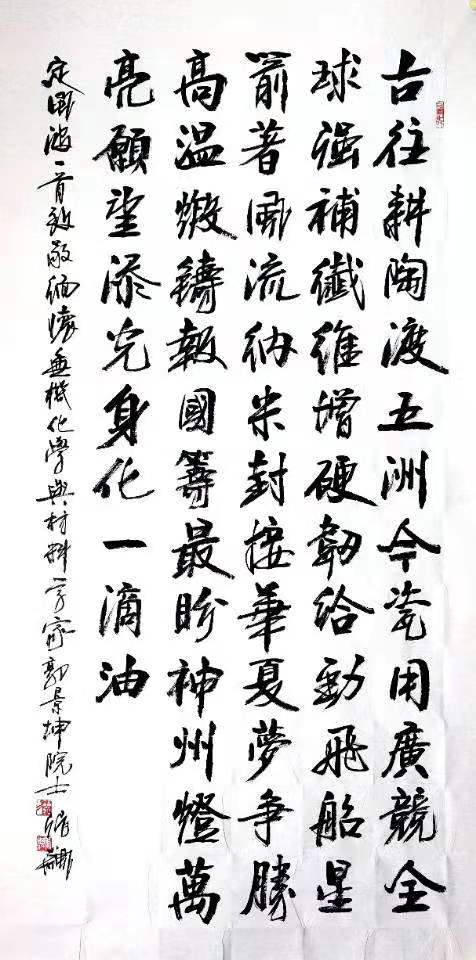 古往耕陶渡五洲今瓷用廣競全
球强補纖維增硬韌給勁飛船星
箭著風流納米封接華夏夢争勝
高温煅鑄報國籌最盼神州燈萬
亮願望添完身化一滴油
定風波一首致敬緬懷無機化學與材料学家郭景坤院士